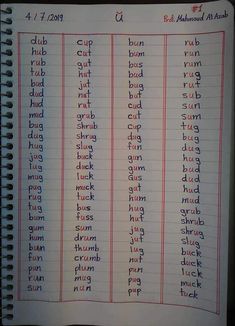 4/7/2019 ŭ #1 Mahmoud Al Azab
dub cup bun rub
hub cut bum run
rub gut bus rum
tub hut bad rug
bud jut bug rut
dud nut but sun
hud rut cud sum
mud grub cut
bug shrub cup tug
dug shrug dug bug
hug slug fun
jug buck gun
lug duck gum bud
mug luck Gus
pug muck gut hud
rug tuck hum mud
tug bus hug
bum fuss hut grub
gum sum jug shrub
hum drum jut shrug
bun thumb lug slug
fun crumb nut buck
pun plum pun duck
run mug pug luck
sun nun pup tuck